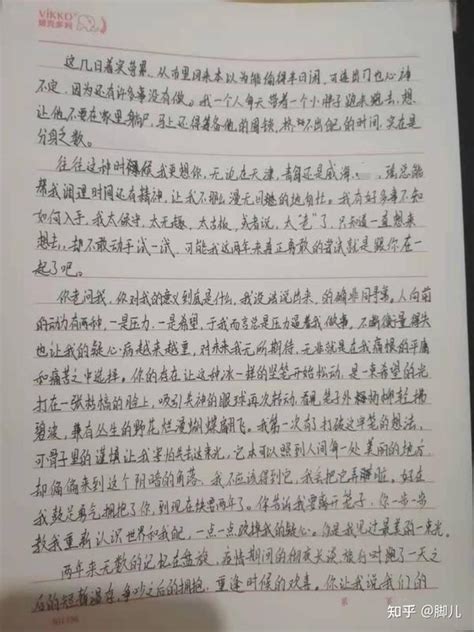 VIKKO
维克多利
这几日着实劳累，从市里回来本以为能偷得半日闲，可连出门也心神
不定，因为还有许多事没有做。我一个人每天带着一个小胖子跑来跑去，想
让他不要在家里躺尸，马上还得筹备他的围锁，挤不出他的时间，实在是
分身乏术。
往往这种时候我更想你，无论在天津，青岛还是威海，
总能
帮我调理时间还有精神，让我不那么漫无目的地自在。我有好多事不知
如何入手，我太保守，太无趣，太古板，或者说，太"老"了，只知道一直想来
想去，却不敢动手试一试，可能我这两年来真正勇敢的尝试就是跟你在一
起了吧。
你老问我，你对我的意义到底是什么，我没法说出来，的确非同寻常。人向前
的动力有两种，一是压力，一是希望，于我而言总是压力逼着我做事。不断衡量得失
也让我的疑心病越来越重，对未来我无所期待，无非就是在我痛恨的平庸
和痛苦之中选择。你的存在让这种冰一样的坚笼开始松动，是一束希望的光
打在一张枯槁的脸上，吸引失神的眼球再次转动，看见笼子外杨柳轻拂
碧波，兼有丛生的野花烂漫蝴蝶翩飞。我第一次有了打破这牢笼的想法，
可骨子里的谨慎让我害怕失去这束光，它本可以照到人间每一处美丽的地方
却偏偏来到这个阴暗的角落，我不应该得到它，我会把它弄脏啦。好在
我鼓足勇气拥抱了你，到现在快要两年了。你告诉我要离开笼子，你一步一步
教我重新认识世界和我自己，一点一点改掉我的疑心。你是我见过最美的一束光。
两年来无数的记忆在盘旋，疫情期间的彻夜长谈，旅行时跑了一天之
后的短暂温存，争吵之后的拥抱，重逢时候的欢喜。你让我说我们的
知乎 @脚儿